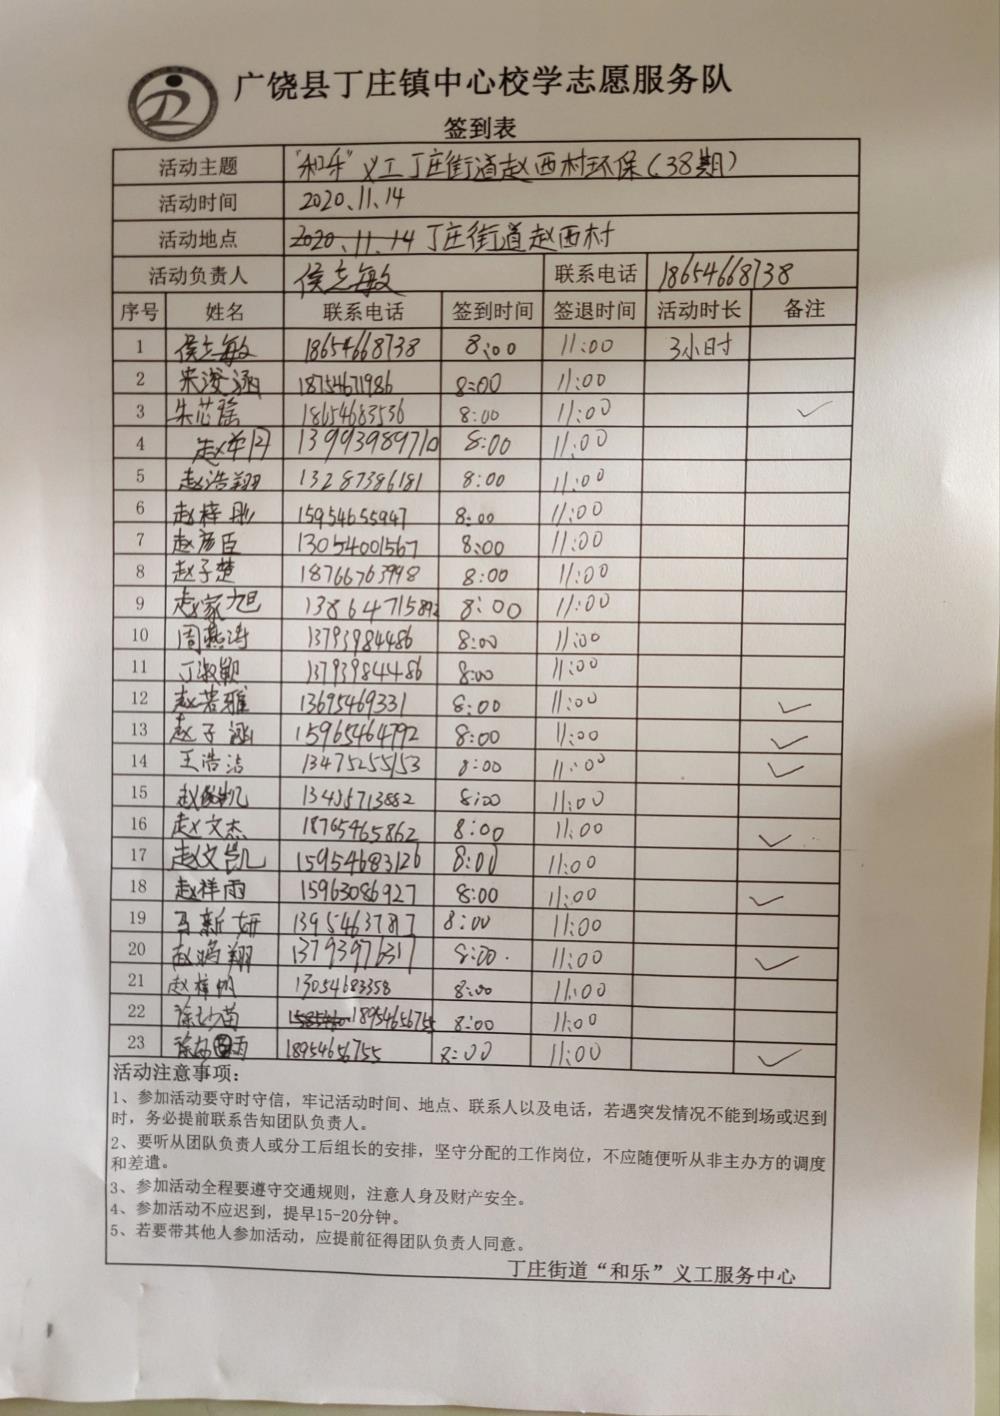 广饶县丁庄镇中心校学志愿服务队
签到表
活动主题 "和乐"义工丁庄街道赵西村环保(38期)
活动时间 2020.11.14
活动地点 2020.11.14 丁庄街道赵西村
活动负责人 侯志敏 联系电话 18654668738
序号 姓名 联系电话 签到时间 签退时间 活动时长 备注
1 侯志敏 18654668738 8:00 11:00 3小时
2 18754671986 8:00 11:00
3 朱芯瑶 18654683536 8:00 11:00 ✓
4 13993989710 8:00 11:00
5 赵浩翔 13287386181 8:00 11:00
6 赵梓彤 15954655947 8:00 11:00
7 赵彦臣 13054001567 8:00 11:00
8 赵子楚 18766763998 8:00 11:00
9 赵家旭 13864715892 8:00 11:00
10 周燕涛 13793984486 8:00 11:00
11 丁淑颖 13793984486 8:00 11:00
12 赵若雅 13695469331 8:00 11:00 ✓
13 赵子涵 15965464792 8:00 11:00 ✓
14 王浩洁 13475255153 8:00 11:00 ✓
15 8:00 11:00
16 赵文杰 18765465862 8:00 11:00 ✓
17 赵文凯 15954683126 8:00 11:00
18 赵祥雨 15963086927 8:00 11:00 ✓
19 马新妍 8:00 11:00
20 赵鸿翔 13793976317 8:00 11:00 ✓
21 赵梓帆 13054683358 8:00 11:00
22 徐妙苗 18954656755 8:00 11:00
23 18954656755 8:00 11:00 ✓
活动注意事项:
1、参加活动要守时守信,牢记活动时间、地点、联系人以及电话,若遇突发情况不能到场或迟到
时,务必提前联系告知团队负责人。
2、要听从团队负责人或分工后组长的安排,坚守分配的工作岗位,不应随便听从非主办方的调度
和差遣。
3、参加活动全程要遵守交通规则,注意人身及财产安全。
4、参加活动不应迟到,提早15-20分钟。
5、若要带其他人参加活动,应提前征得团队负责人同意。
丁庄街道“和乐”义工服务中心